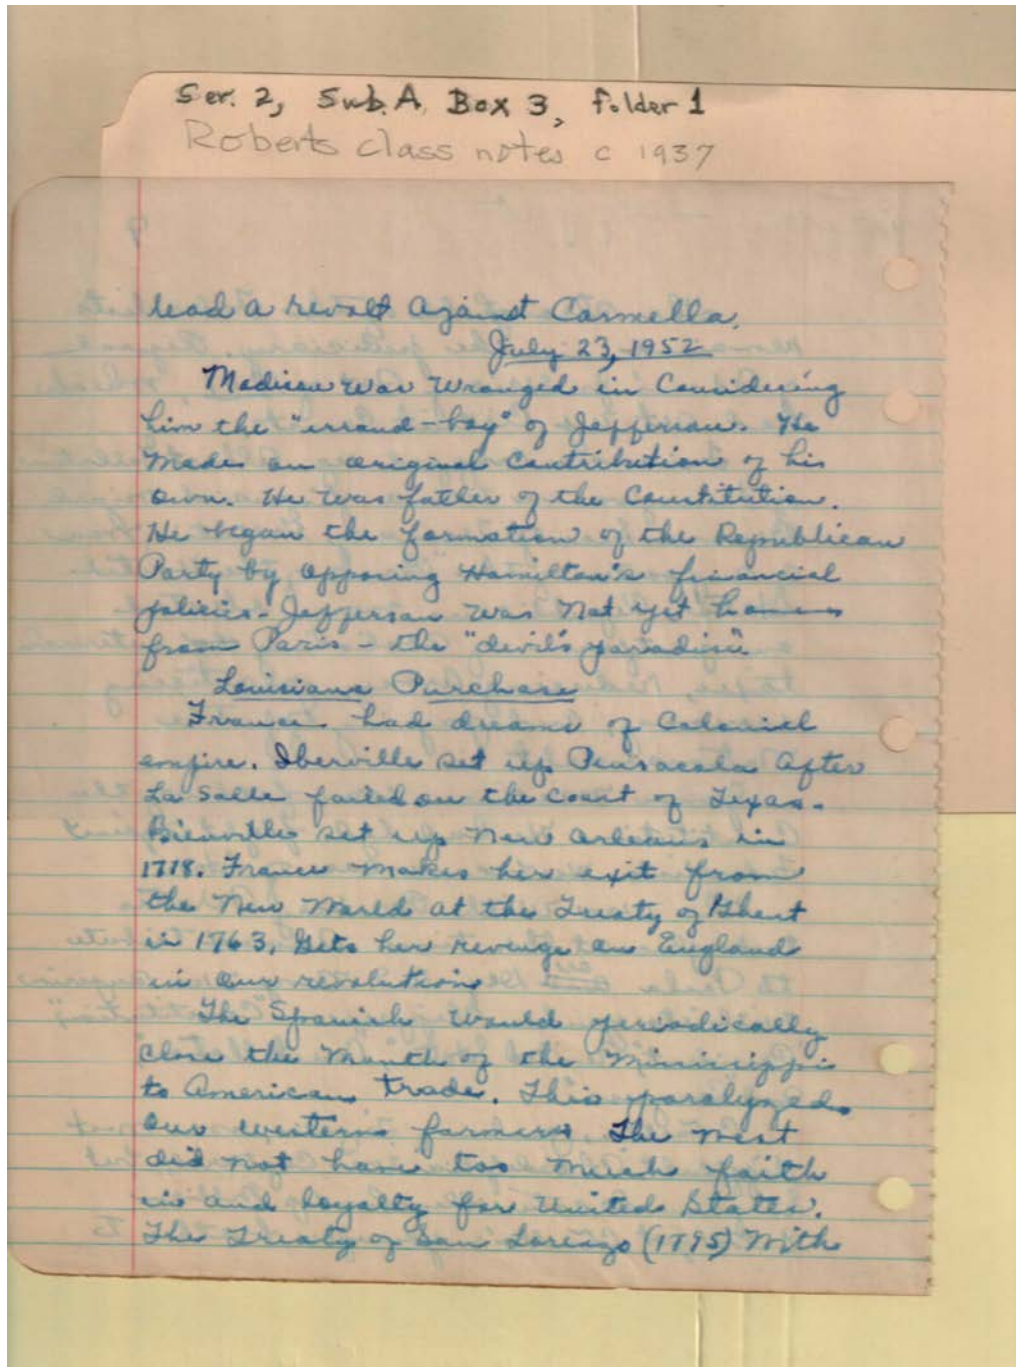 Ser. 2, Sub. A, Box 3, Folder 1
Roberts class notes c 1937
lead a revolt against Carmella.
July 23, 1952
Madison was wronged in Considering
him the "errand-boy" of Jefferson. He
made an original Contribution of his
own. He was father of the Constitution.
He began the formation of the Republican
Party by opposing Hamilton's financial
policies - Jefferson was not yet home
from Paris - the "devil's paradise"
Louisiana Purchase
France had dreams of Colonial
empire. Iberville set up Pensacola after
La Salle failed on the coast of Texas.
Bienville set up New Orleans in
1718. France makes her exit from
the New World at the Treaty of Ghent
in 1763. Gets her revenge on England
in our revolution
The Spanish would periodically
close the mouth of the Mississippi
to American trade. This paralyzed
our western farmers. The west
did not have too much faith
in and loyalty for United States.
The Treaty of San Lorenzo (1795) with